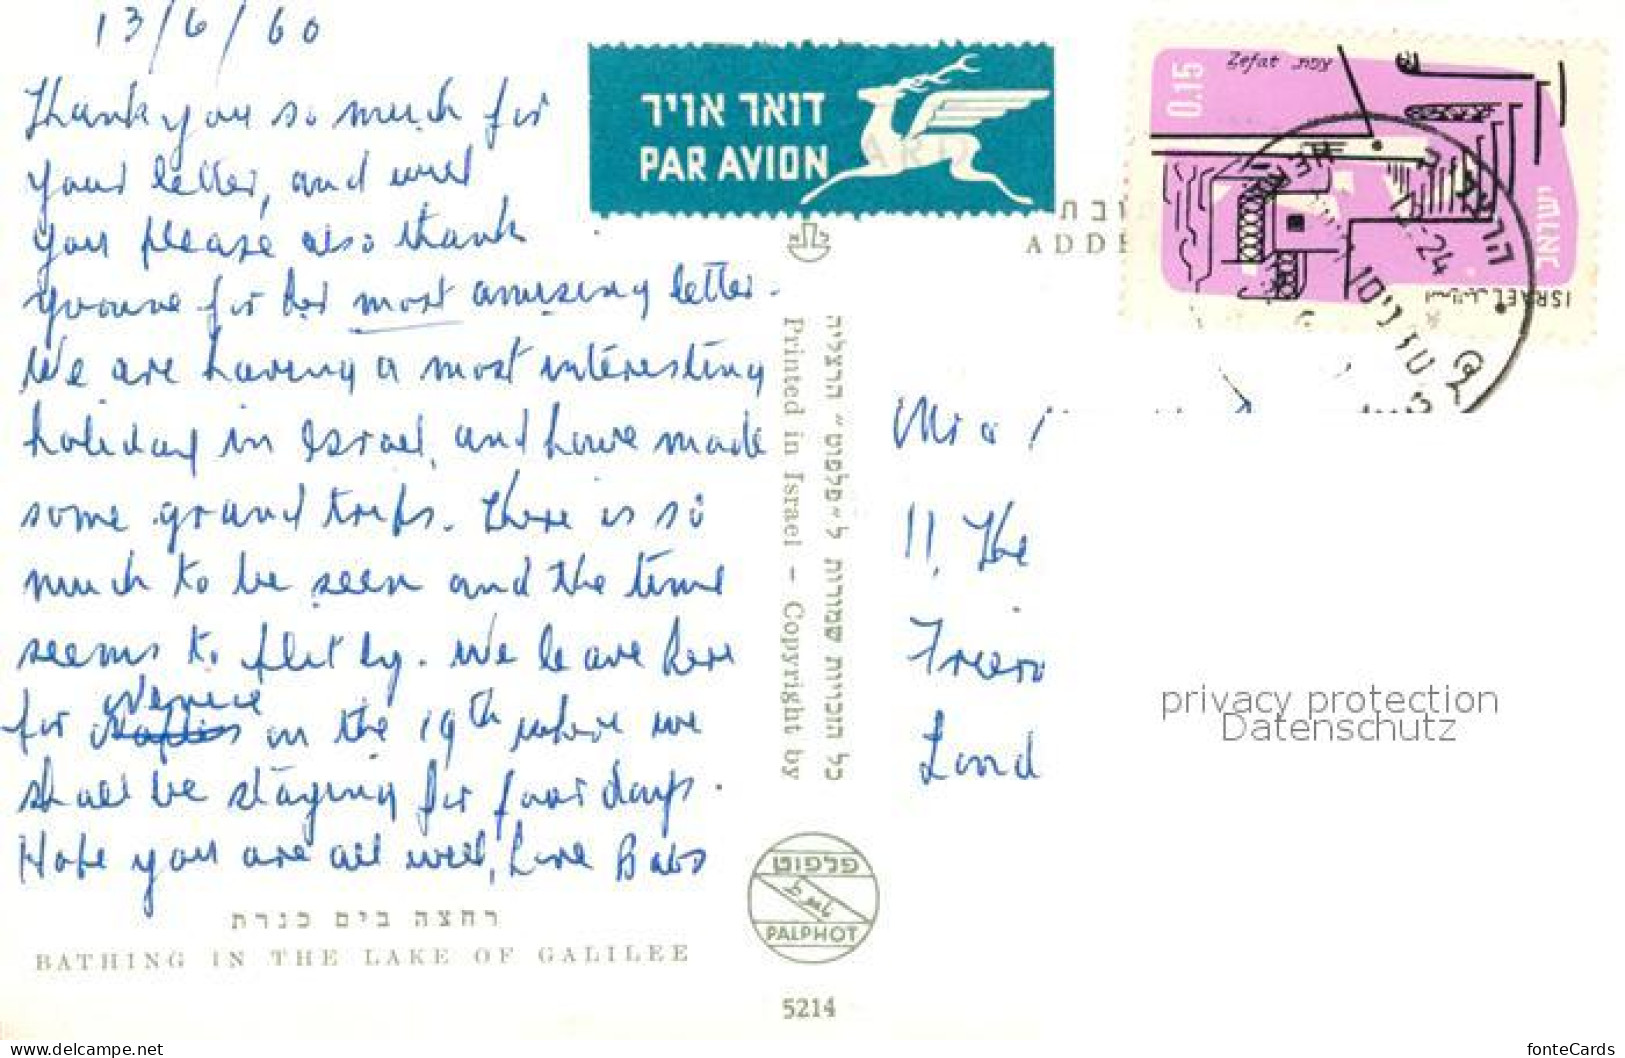 13/6/60
Thank you so much for
your letter, and will
you please also thank
Yvonne for her most amusing letter.
We are having a most interesting
holiday in Israel, and have made
some grand trips. There is so
much to be seen and the time
seems to flit by. We leave here
for Venice on the 19th where we
shall be staying for four days.
Hope you are all well, Love Babs
רחצה בים כנרת
BATHING IN THE LAKE OF GALILEE
דואר אויר
PAR AVION
ADDRE
Printed in Israel – Copyright by
כל הזכויות שמורות ל״פלפוט״ הרצליה
פלפוט
PALPHOT
5214
Zefat צפת
0.15
ישראל
ISRAEL اسرائيل
11, The
Lond
privacy protection
Datenschutz
www.delcampe.net
fonteCards